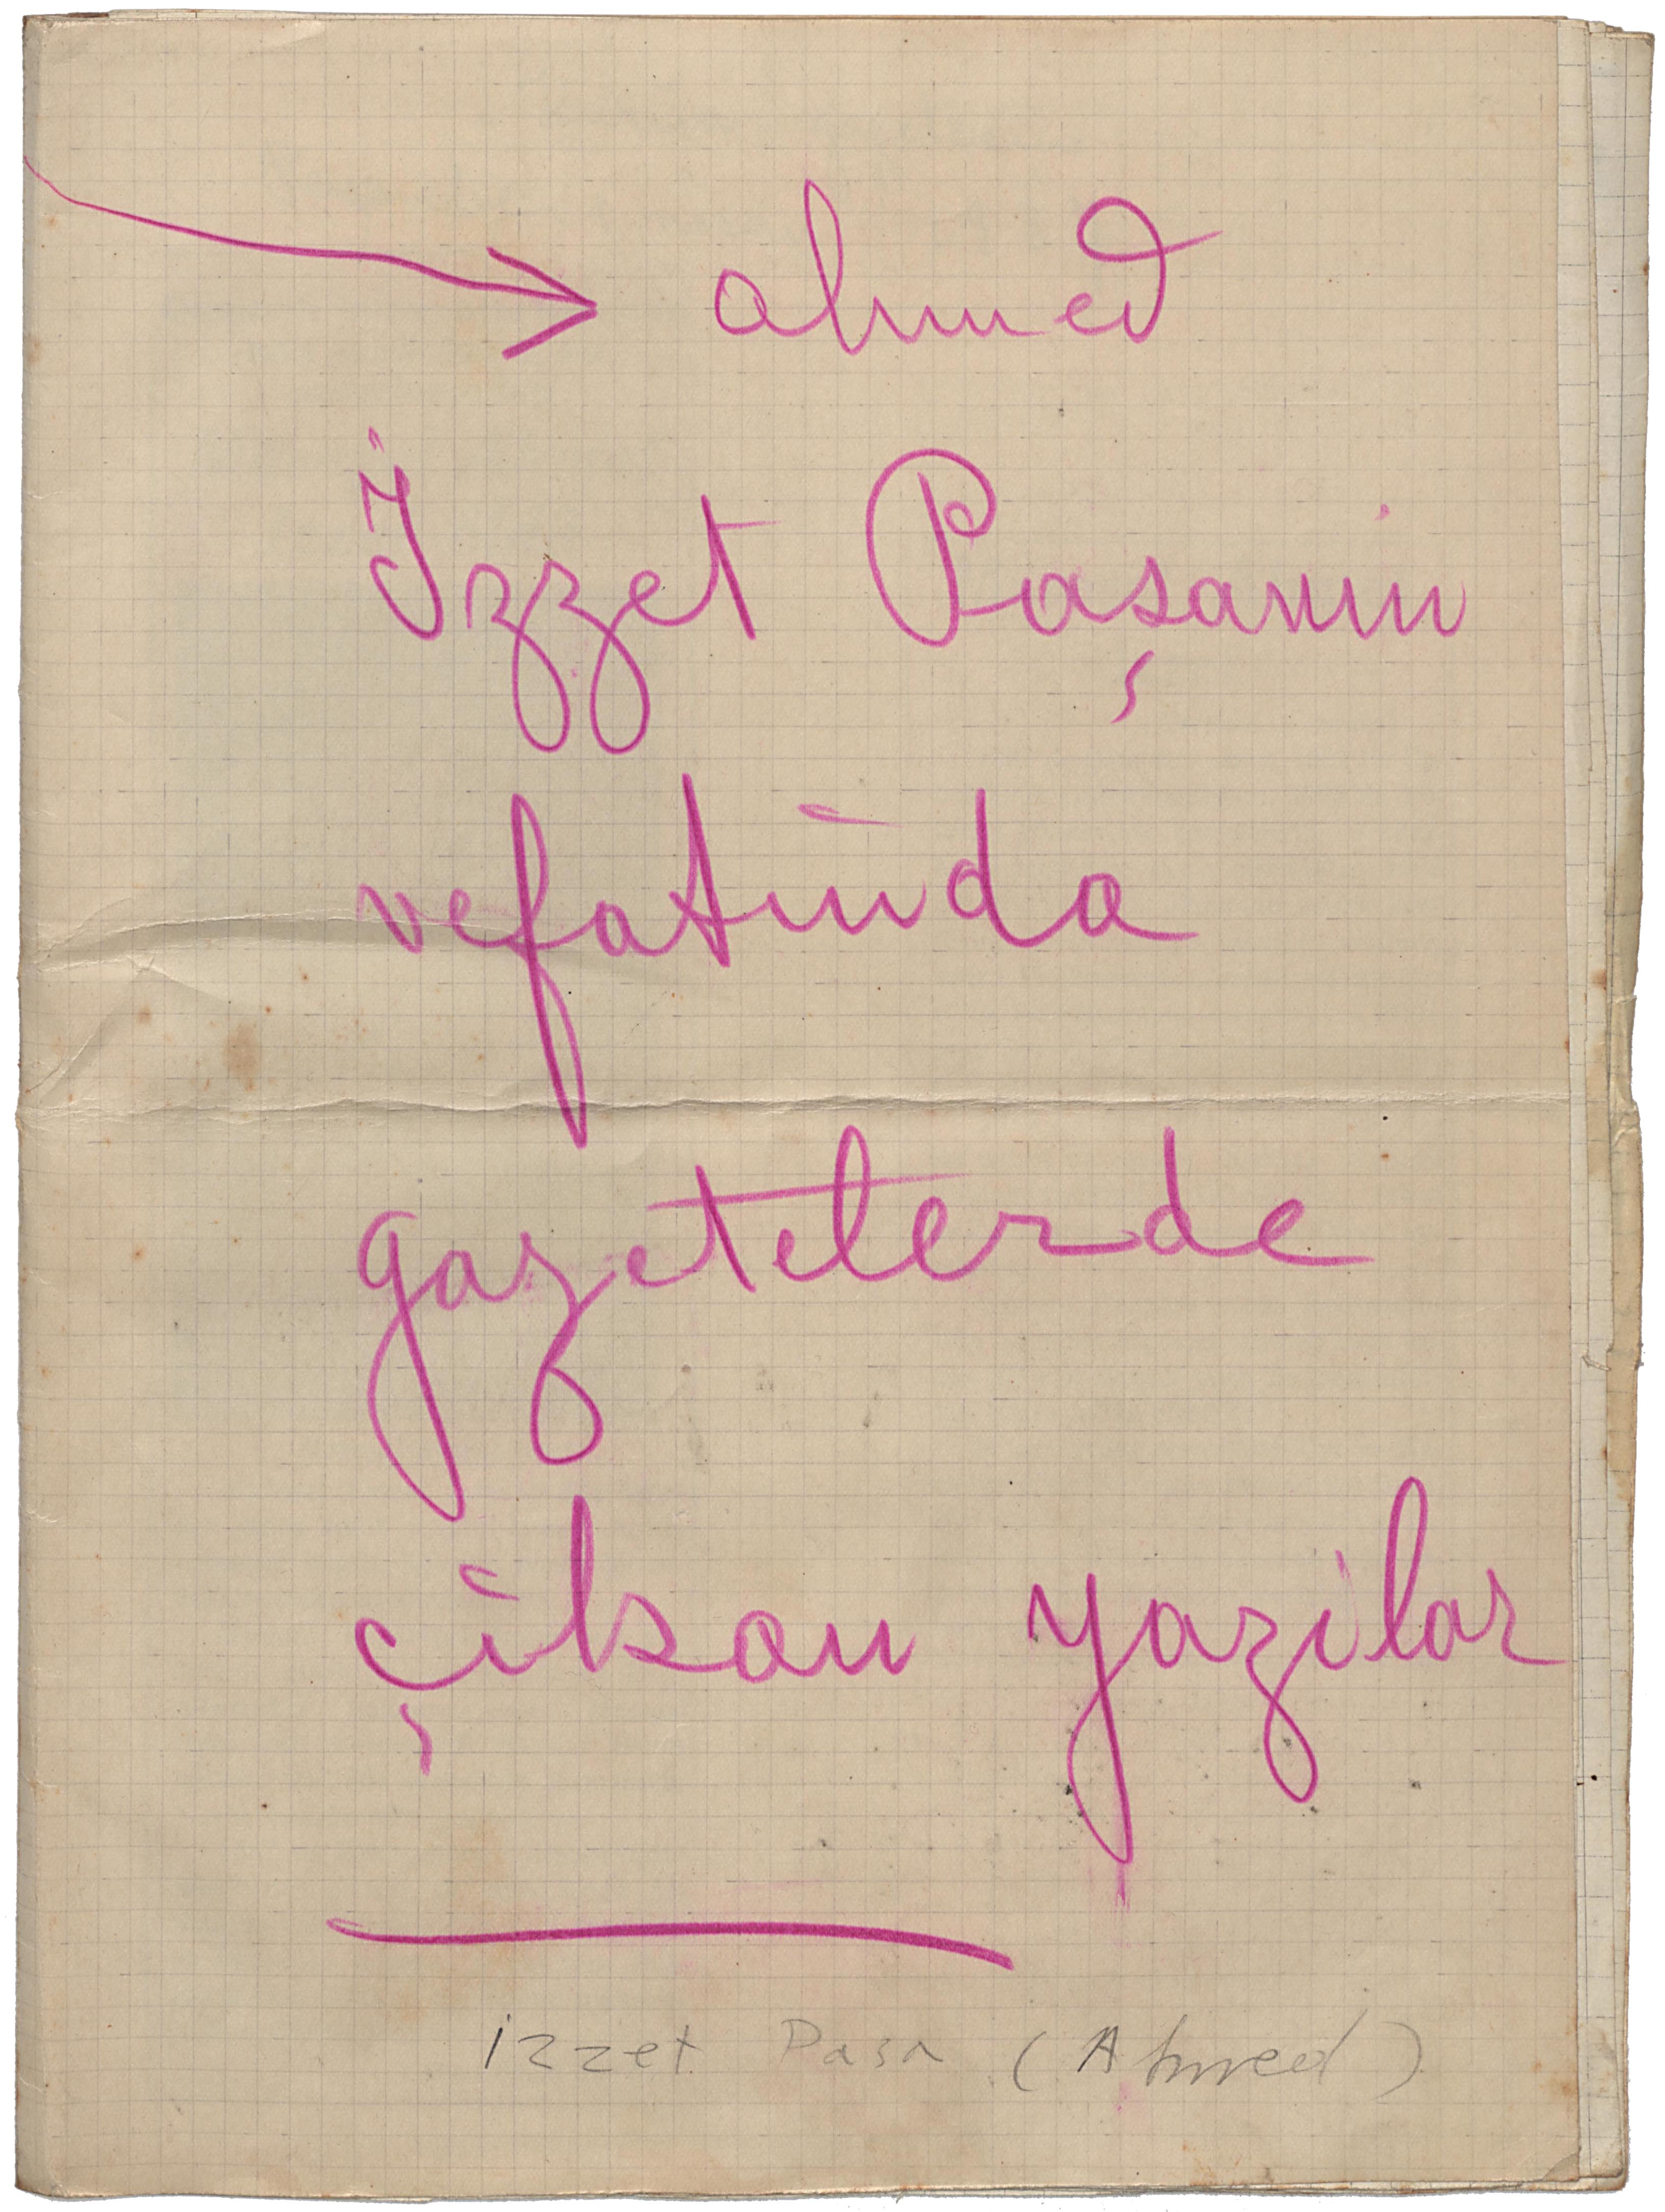 ahmed
İzzet Paşanin
vefatinda
gazetelerde
çikan yazilar
izzet Pasa (Ahmed)